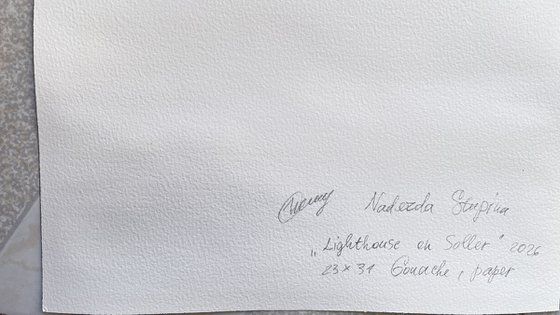 Nadezda Stupina
„Lighthouse en Soller" 2026
23 x 31 Gouache, paper